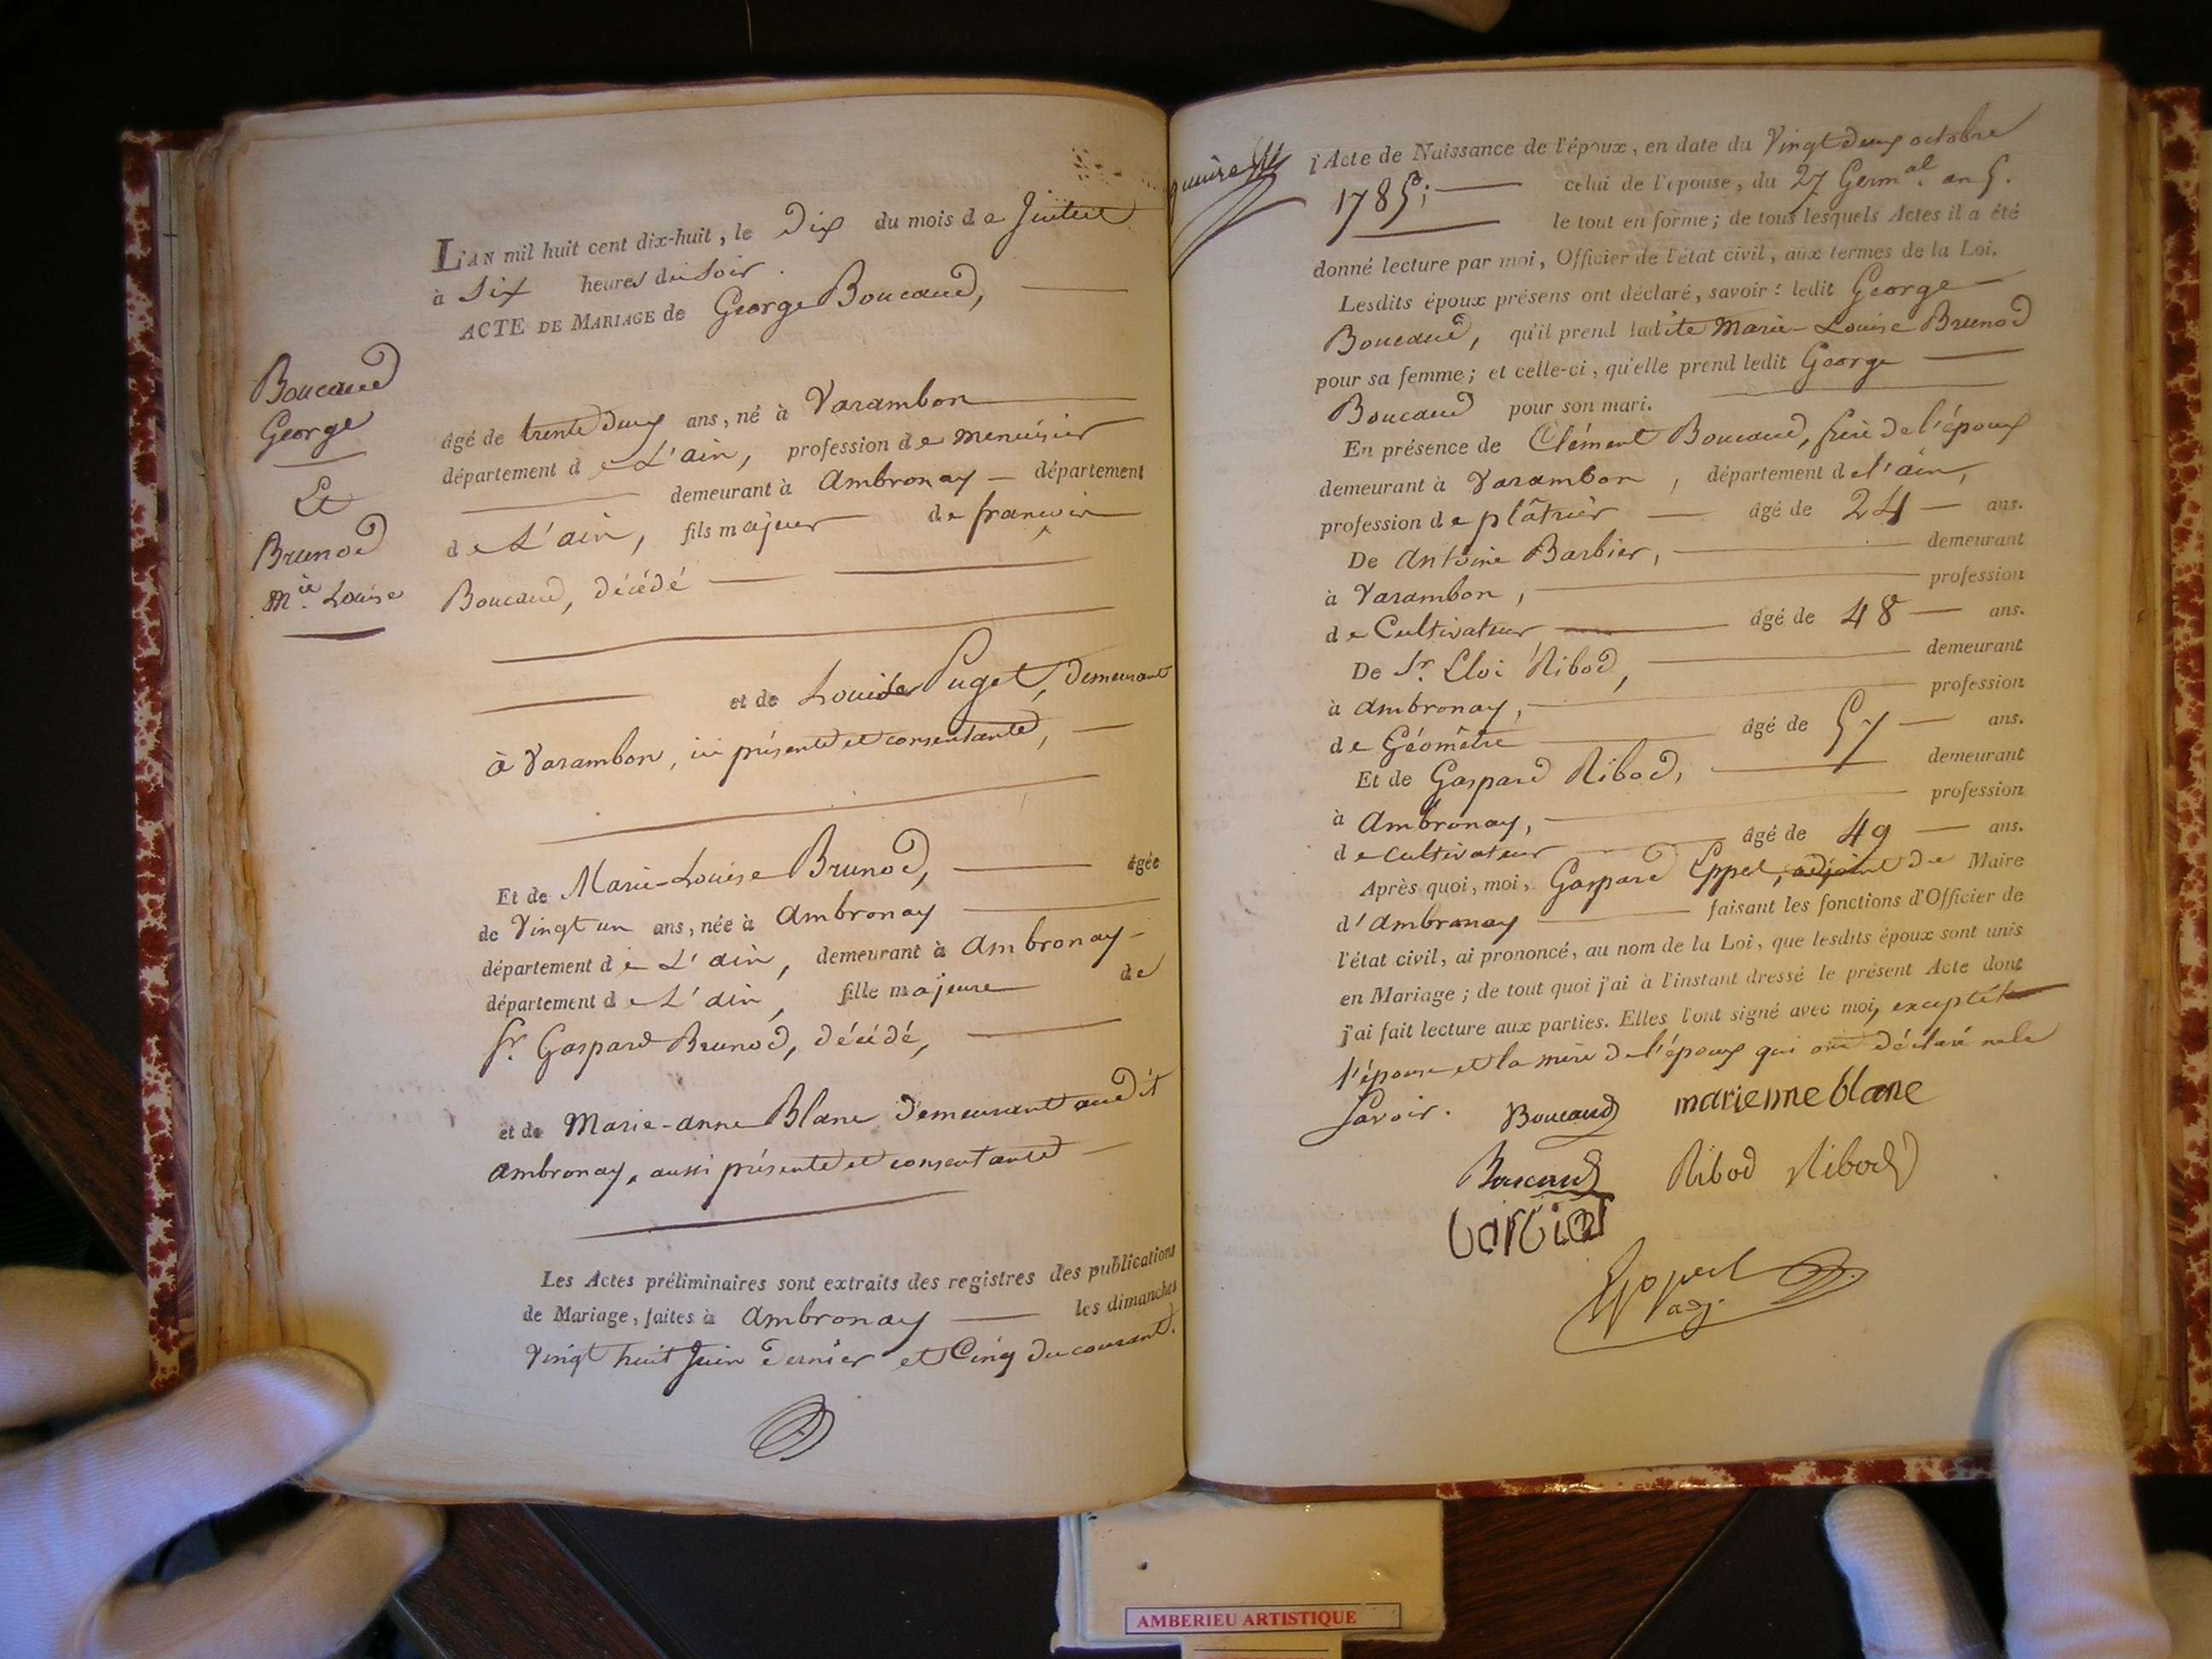 L'AN mil huit cent dix-huit, le Dix du mois de Juillet
à Six heures du Soir.
ACTE DE MARIAGE de George Boucaud,
Boucaud
George
Et
Brunod
Mie. Louise
âgé de trente deux ans, né à Varambon
département de L'ain, profession de menuisier
demeurant à Ambronay département
de L'ain, fils majeur de françois
Boucaud, décédé
et de Louise Puget, demeurant
à Varambon, ici présente et consentante,
Et de Marie-Louise Brunod, âgée
de Vingt un ans, née à Ambronay
département de L'ain, demeurant à Ambronay
département de L'ain, fille majeure de
Sr. Gaspard Brunod, décédé,
et de Marie-anne Blanc demeurant audit
Ambronay, aussi présente et consentante
Les Actes préliminaires sont extraits des registres des publications
de Mariage, faites à Ambronay les dimanches
Vingt huit Juin dernier et Cinq du courant.
l'Acte de Naissance de l'époux, en date du Vingt deux octobre
1785; celui de l'épouse, du 27 Germal. an 5.
le tout en forme; de tous lesquels Actes il a été
donné lecture par moi, Officier de l'état civil, aux termes de la Loi.
Lesdits époux présens ont déclaré, savoir: ledit George
Boucaud, qu'il prend ladite Marie-Louise Brunod
pour sa femme; et celle-ci, qu'elle prend ledit George
Boucaud pour son mari.
En présence de Clément Boucaud, frère de l'époux
demeurant à Varambon, département de l'ain,
profession de plâtrier âgé de 24 ans.
De Antoine Barbier, demeurant
à Varambon, profession
de Cultivateur âgé de 48 ans.
De Sr. Eloi Ribod, demeurant
à Ambronay, profession
de Géomètre âgé de 57 ans.
Et de Gaspard Ribod, demeurant
à Ambronay, profession
de cultivateur âgé de 49 ans.
Après quoi, moi, Gaspard Eppel, adjoint de Maire
d'Ambronay faisant les fonctions d'Officier de
l'état civil, ai prononcé, au nom de la Loi, que lesdits époux sont unis
en Mariage; de tout quoi j'ai à l'instant dressé le présent Acte dont
j'ai fait lecture aux parties. Elles l'ont signé avec moi, excepté
l'épouse et la mère de l'époux qui ont déclaré ne le
Savoir. Boucaud marienne blanc
Boucaud Ribod Ribod
barbier
Eppel
adj.
AMBERIEU ARTISTIQUE